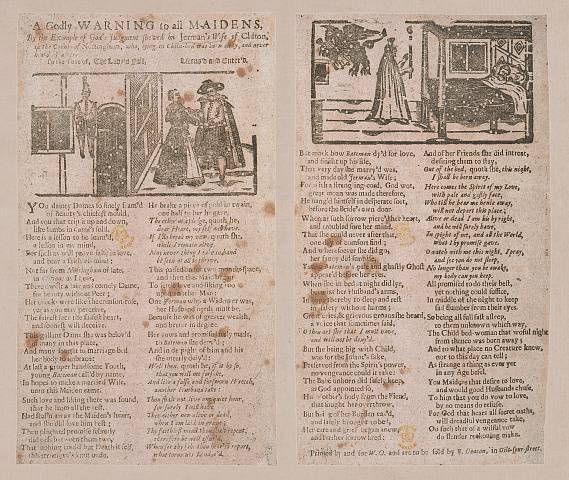 A Godly WARNING to all MAIDENS,
By the Example of God's Judgment shewed on Jerman's Wife of Clifton,
in the County of Nottingham, who, lying in Child-bed was born away, and never
heard of after.
To the Tune of, The Lady's Fall. Licens'd and Enter'd.
YOu dainty Dames so finely fram'd
of Beauty's chiefest mould,
And you that trip it up and down,
like lambs in Cupid's fold,
Here is a lesson to be learn'd,
a lesson in my mind,
For such as will prove false in love,
and bear a faithless mind:
Not far from Nottingham of late,
in Clifton as I hear,
There dwelt a fair and comely Dame,
for beauty without Peer;
Her cheeks were like the crimson rose,
yet as you may perceive,
The fairest face the falsest heart,
and soonest will deceive.
This gallant Dame she was belov'd
of many in that place,
And many sought in marriage bed
her body to embrace:
At last a proper handsome Youth,
young Bateman call'd by name,
In hopes to make a married Wife,
unto this Maiden came.
Such love and liking there was found,
that he from all the rest,
Had stol'n away the Maiden's heart,
and she did love him best;
Then plighted promise secretly
did pass between them two,
That nothing could but Death it self,
this true love's knot undo.
He brake a piece of gold in twain,
one half to her he gave,
The other as a pledge, quoth he,
dear Heart, my self will have.
If I do break my vow, quoth she,
while I remain alive,
May never thing I take in hand
be seen at all to thrive.
This passed on for two months space,
and then this Maid began
To settle love and liking too
upon another Man:
One Jerman who a Widower was,
her Husband needs must be,
Because he was of greater wealth,
and better in degree.
Her vows and promises lately made,
to Bateman she deny'd;
And in despite of him and his
she utterly defy'd;
Well then, quoth he, if it be so,
that you will me forsake,
And like a false and forsworn Wretch,
another Husband take:
Thou shalt not live one quiet hour,
for surely I will have
Thee either now alive or dead,
when I am laid in grave:
Thy faithless mind thou shalt repent,
therefore be well assur'd,
When for thy sake thou hear'st report,
what torments I endur'd.
But mark how Bateman dy'd for love,
and finisht up his life,
That very day she marry'd was,
and made old Jerman's Wife;
For with a strangling-cord, God wot,
great moan was made therefore,
He hang'd himself in desperate sort,
before the Bride's own door.
Whereat such sorrow pierc'd her heart,
and troubled sore her mind,
That she could never after that
one day of comfort find;
And wheresoever she did go,
her fancy did surmise,
Young Bateman's pale and ghastly Ghost
appeared before her eyes.
When she in bed at night did lye,
betwixt her Husband's arms,
In hope thereby to sleep and rest
in safety without harms;
Great cries, & grievous groans she heard,
a voice that sometimes said,
O thou art she that I must have,
and will not be deny'd.
But she being big with Child,
was for the Infant's sake,
Preserved from the Spirit's power,
no vengeance could it take:
The Babe unborn did safely keep,
as God appointed so,
His Mother's body from the Fiend,
that sought her overthrow.
But being of her Burden eas'd,
and safely brought to bed,
Her care and grief began anew,
and farther sorrow bred:
And of her Friends she did intreat,
desiring them to stay,
Out of the bed, quoth she, this night,
I shall be born away.
Here comes the Spirit of my Love,
with pale and gastly face,
Who till he bear me hence away,
will not depart this place:
Alive or dead I'm his by right,
and he will surely have,
In spight of me, and all the World,
what I by promise gave.
O watch with me this night, I pray,
and see you do not sleep,
No longer than you be awake,
my body can you keep.
All promised to do their best,
yet nothing could suffice,
In middle of the night to keep
sad slumber from their eyes.
So being all full fast asleep,
to them unknown which way,
The Child-bed-woman that woful night
from thence was born away;
And to what place no Creature knew,
nor to this day can tell;
As strange a thing as ever yet
in any Age befel.
You Maidens that desire to love,
and would good Husbands chuse,
To him that you do vow to love,
by no means do refuse,
For God that hears all secret oaths,
will dreadful vengeance take,
On such that of a wilful vow
do slender reckoning make.
Printed by and for W. O. and are to be sold by B. Deacon, in Gilt-spur-street.